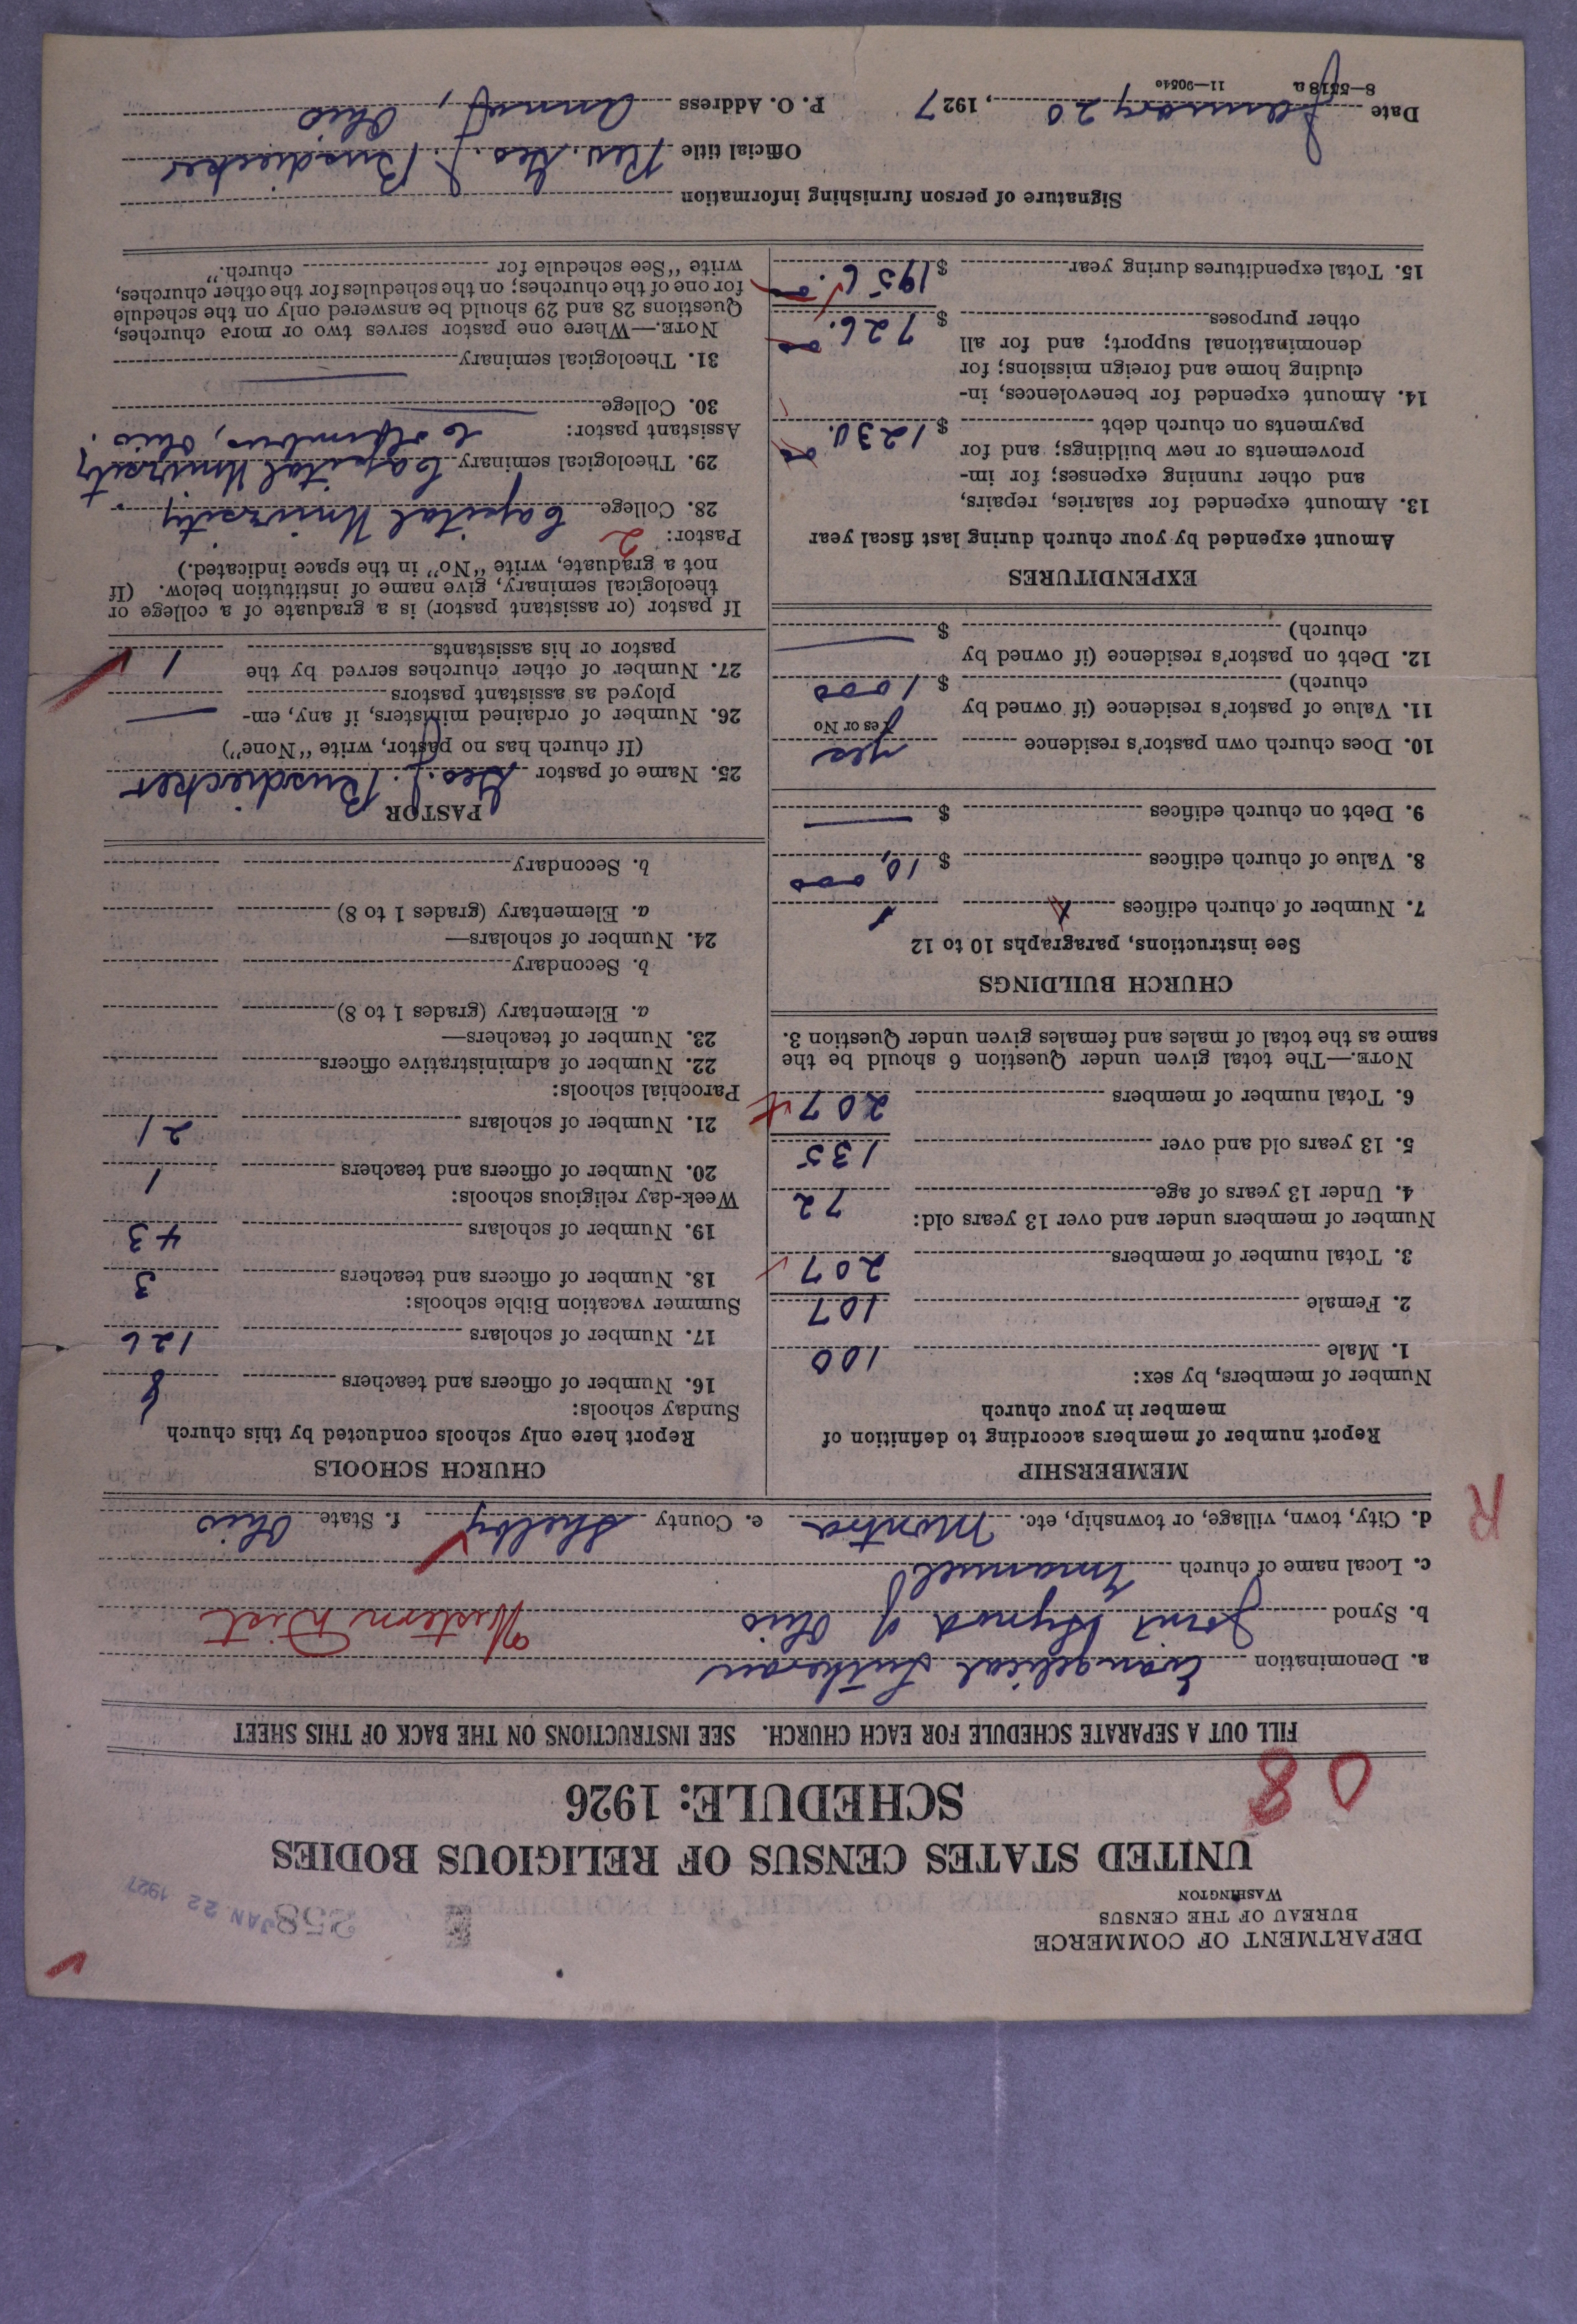 DEPARTMENT OF COMMERCE
BUREAU OF THE CENSUS
WASHINGTON
JAN 22 1927
UNITED STATES CENSUS OF RELIGIOUS BODIES
SCHEDULE: 1926
08
FILL OUT A SEPARATE SCHEDULE FOR EACH CHURCH. SEE INSTRUCTIONS ON THE BACK OF THIS SHEET
a. Denomination Evangelical Lutheran
b. Synod Joint Synod of Ohio Western Dist
c. Local name of church Immanuel
d. City, town, village, or township, etc. Montra e. County Shelby f. State Ohio
R
MEMBERSHIP
Report number of members according to definition of
member in your church
Number of members, by sex:
1. Male 100
2. Female 107
3. Total number of members 207
Number of members under and over 13 years old:
4. Under 13 years of age 72
5. 13 years old and over 135
6. Total number of members 207
NOTE.—The total given under Question 6 should be the
same as the total of males and females given under Question 3.
CHURCH BUILDINGS
See instructions, paragraphs 10 to 12
7. Number of church edifices 1
8. Value of church edifices $ 10,000
9. Debt on church edifices $ —
10. Does church own pastor's residence yes
Yes or No
11. Value of pastor's residence (if owned by
church) $ 1000
12. Debt on pastor's residence (if owned by
church) $ —
EXPENDITURES
Amount expended by your church during last fiscal year
13. Amount expended for salaries, repairs,
and other running expenses; for im-
provements or new buildings; and for
payments on church debt $ 1230.00
14. Amount expended for benevolences, in-
cluding home and foreign missions; for
denominational support; and for all
other purposes $ 726.00
15. Total expenditures during year $ 1956.00
CHURCH SCHOOLS
Report here only schools conducted by this church
Sunday schools:
16. Number of officers and teachers 8
17. Number of scholars 126
Summer vacation Bible schools:
18. Number of officers and teachers 3
19. Number of scholars 43
Week-day religious schools:
20. Number of officers and teachers 1
21. Number of scholars 21
Parochial schools:
22. Number of administrative officers
23. Number of teachers—
a. Elementary (grades 1 to 8)
b. Secondary
24. Number of scholars—
a. Elementary (grades 1 to 8)
b. Secondary
PASTOR
25. Name of pastor Geo. J. Busdiecker
(If church has no pastor, write "None")
26. Number of ordained ministers, if any, em-
ployed as assistant pastors —
27. Number of other churches served by the
pastor or his assistants 1
If pastor (or assistant pastor) is a graduate of a college or
theological seminary, give name of institution below. (If
not a graduate, write "No" in the space indicated.)
Pastor: 2
28. College Capital University.
29. Theological seminary Capital University
Columbus, Ohio.
Assistant pastor:
30. College —
31. Theological seminary —
NOTE.—Where one pastor serves two or more churches,
Questions 28 and 29 should be answered only on the schedule
for one of the churches; on the schedules for the other churches,
write "See schedule for church."
Signature of person furnishing information
Official title Rev. Geo. J. Busdiecker
Date January 20, 1927 P. O. Address Anna, Ohio
8—5518a 11—9054c